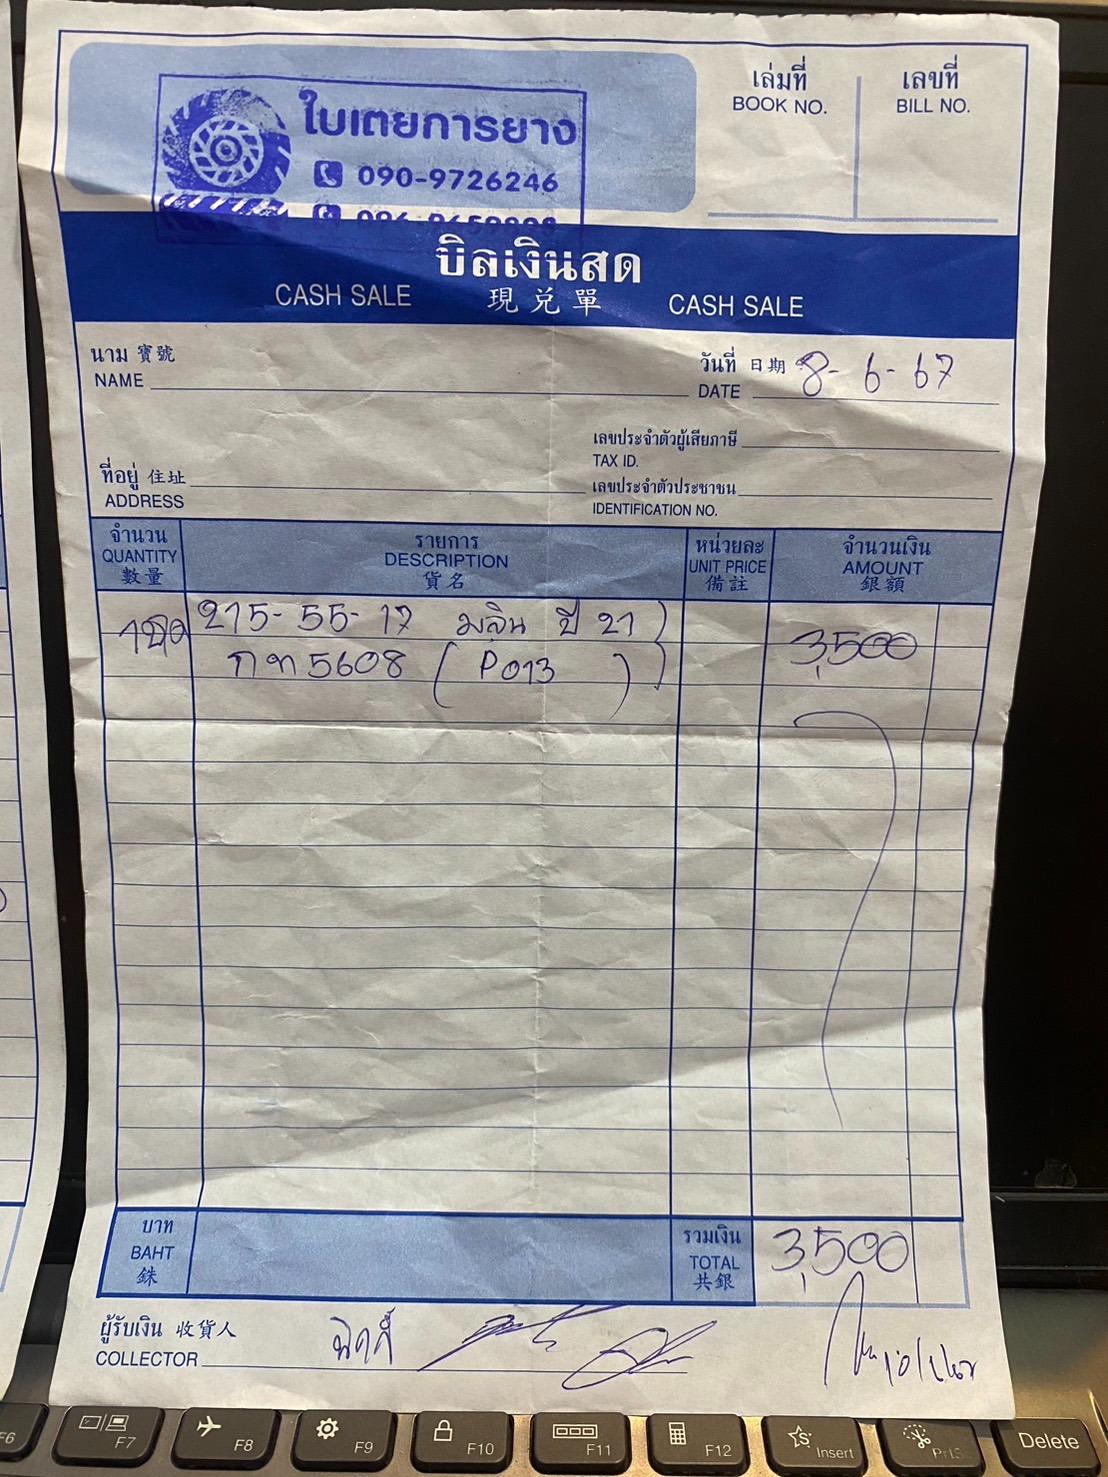 ใบเตยการยาง
090-9726246
เล่มที่
BOOK NO.
เลขที่
BILL NO.
บิลเงินสด
CASH SALE 現兑單 CASH SALE
นาม 寶號
NAME
วันที่ 日期 8-6-67
DATE
เลขประจำตัวผู้เสียภาษี
TAX ID.
ที่อยู่ 住址
ADDRESS
เลขประจำตัวประชาชน
IDENTIFICATION NO.
จำนวน
QUANTITY
數量
รายการ
DESCRIPTION
貨名
หน่วยละ
UNIT PRICE
備註
จำนวนเงิน
AMOUNT
銀額
215-55-17 มลิน ปี 21 3,500
กท 5608 (P013)
บาท
BAHT
銖
รวมเงิน
TOTAL
共銀
3,500
ผู้รับเงิน 收貨人
COLLECTOR
F6
F7
F8
F9
F10
F11
F12
Insert
PrtSc
Delete